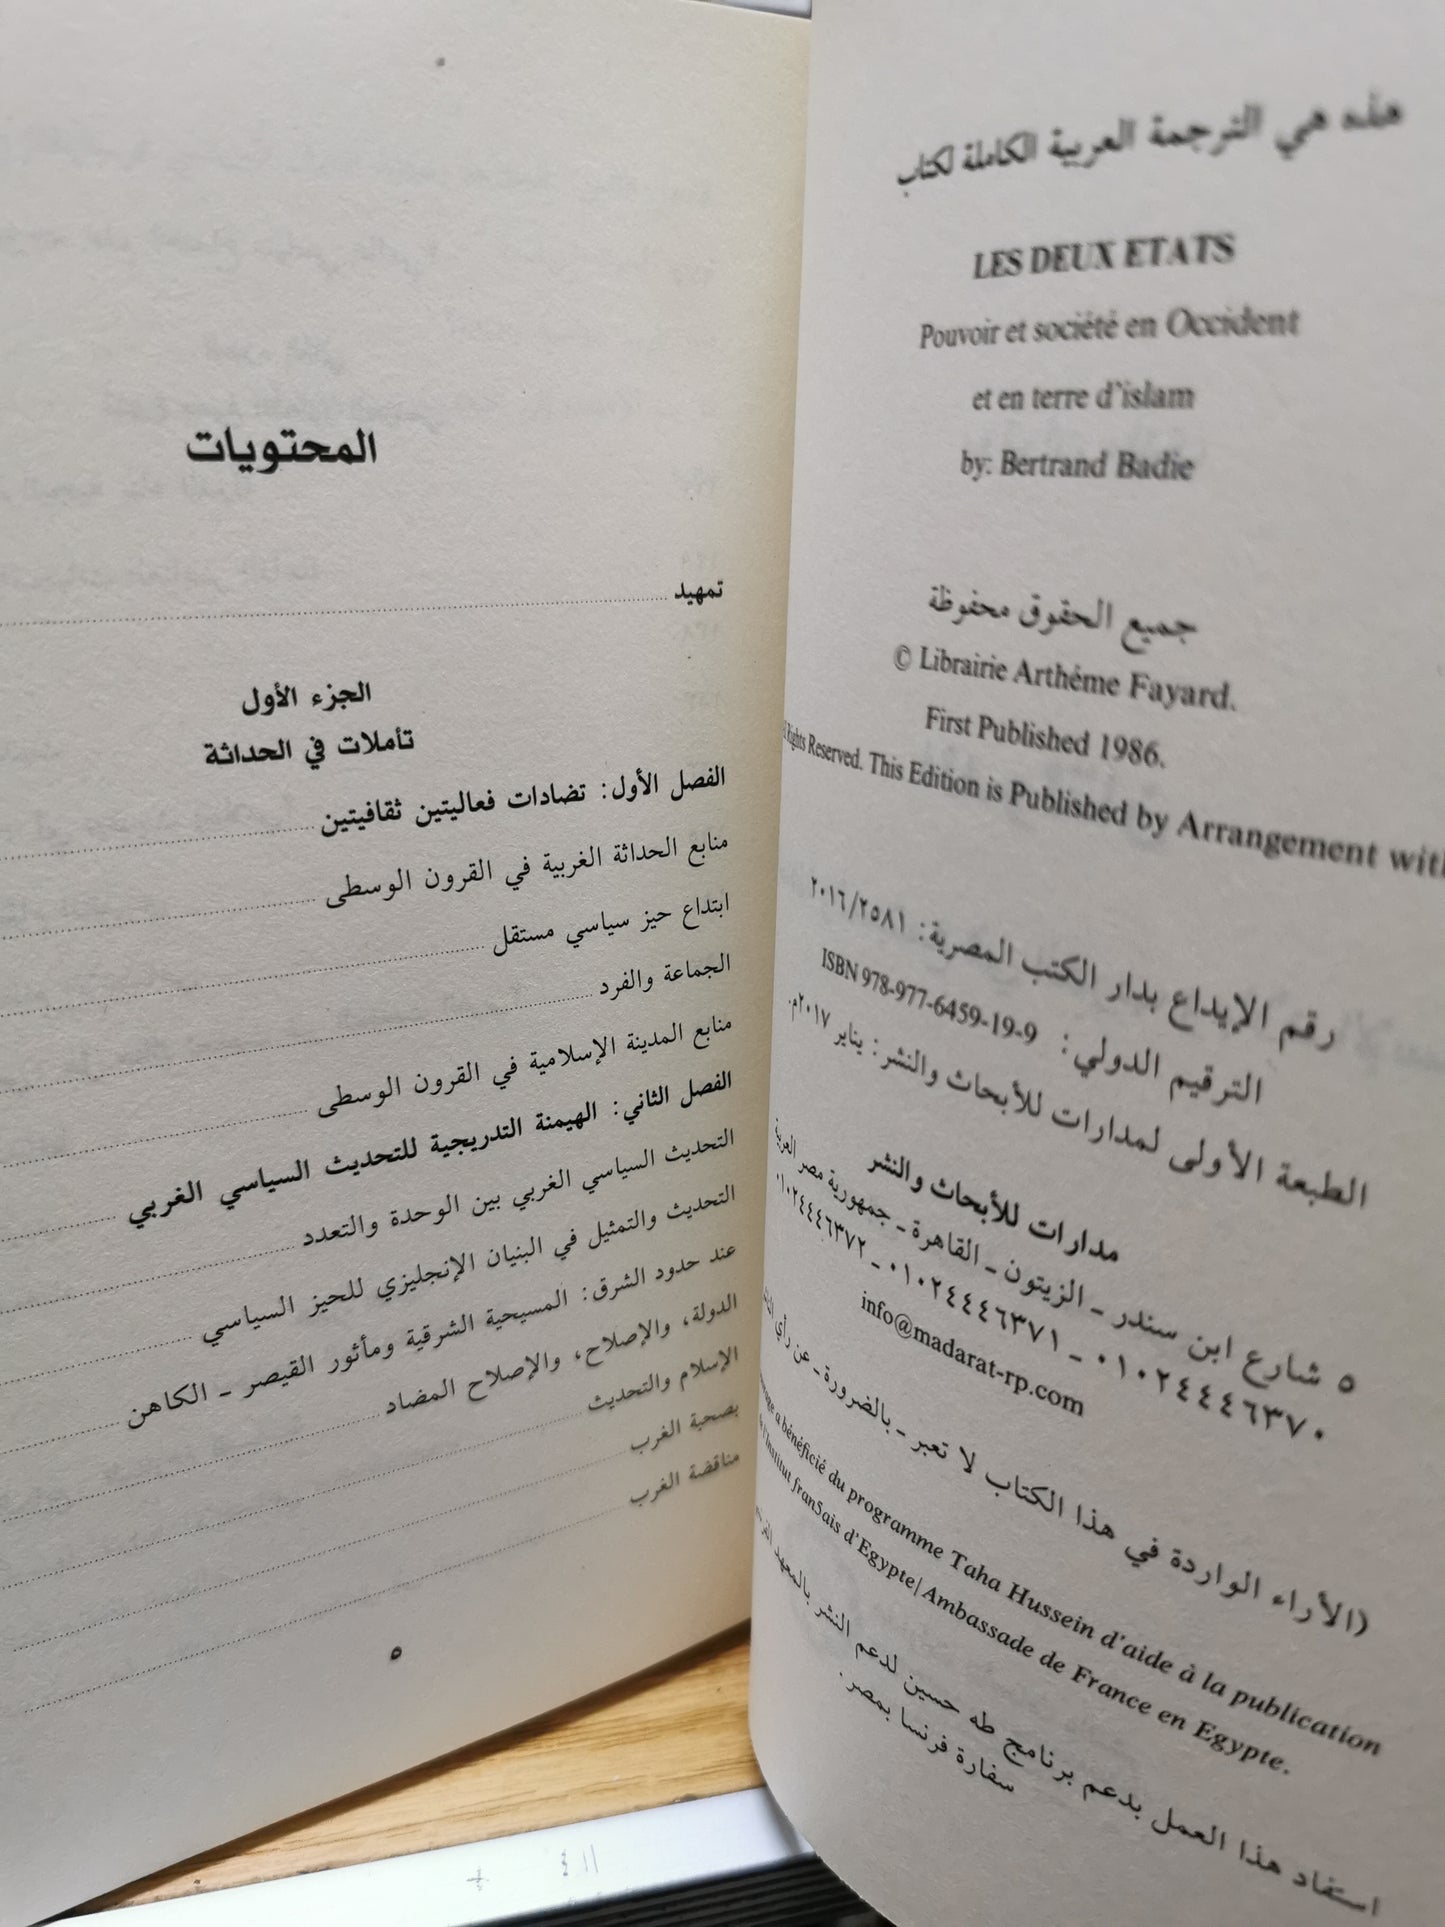 هذه هي الترجمة العربية الكاملة لكتاب
LES DEUX ETATS
Pouvoir et société en Occident
et en terre d'islam
by: Bertrand Badie
جميع الحقوق محفوظة
© Librairie Arthéme Fayard.
First Published 1986.
Rights Reserved. This Edition is Published by Arrangement with
رقم الإيداع بدار الكتب المصرية: ٢٠١٦/٢٥٨١
الترقيم الدولي: ISBN 978-977-6459-19-9
الطبعة الأولى لمدارات للأبحاث والنشر: يناير ٢٠١٧م.
مدارات للأبحاث والنشر
٥ شارع ابن سندر ـ الزيتون ـ القاهرة ـ جمهورية مصر العربية
٠١٠٢٤٤٤٦٣٧٠ ـ ٠١٠٢٤٤٤٦٣٧١ ـ ٠١٠٢٤٤٤٦٣٧٢
info@madarat-rp.com
(الأراء الواردة في هذا الكتاب لا تعبر ـ بالضرورة ـ عن رأي
a bénéficié du programme Taha Hussein d'aide à la publication
l'Institut fran5ais d'Egypte/Ambassade de France en Egypte.
استفاد هذا العمل بدعم برنامج طه حسين لدعم النشر بالمعهد
سفارة فرنسا بمصر.
المحتويات
تمهيد
الجزء الأول
تأملات في الحداثة
الفصل الأول: تضادات فعاليتين ثقافيتين
منابع الحداثة الغربية في القرون الوسطى
ابتداع حيز سياسي مستقل
الجماعة والفرد
منابع المدينة الإسلامية في القرون الوسطى
الفصل الثاني: الهيمنة التدريجية للتحديث السياسي الغربي
التحديث السياسي الغربي بين الوحدة والتعدد
التحديث والتمثيل في البنيان الإنجليزي للحيز السياسي
عند حدود الشرق: المسيحية الشرقية ومأثور القيصر ـ الكاهن
الدولة، والإصلاح، والإصلاح المضاد
الإسلام والتحديث
بصحبة الغرب
مناقضة الغرب
٥